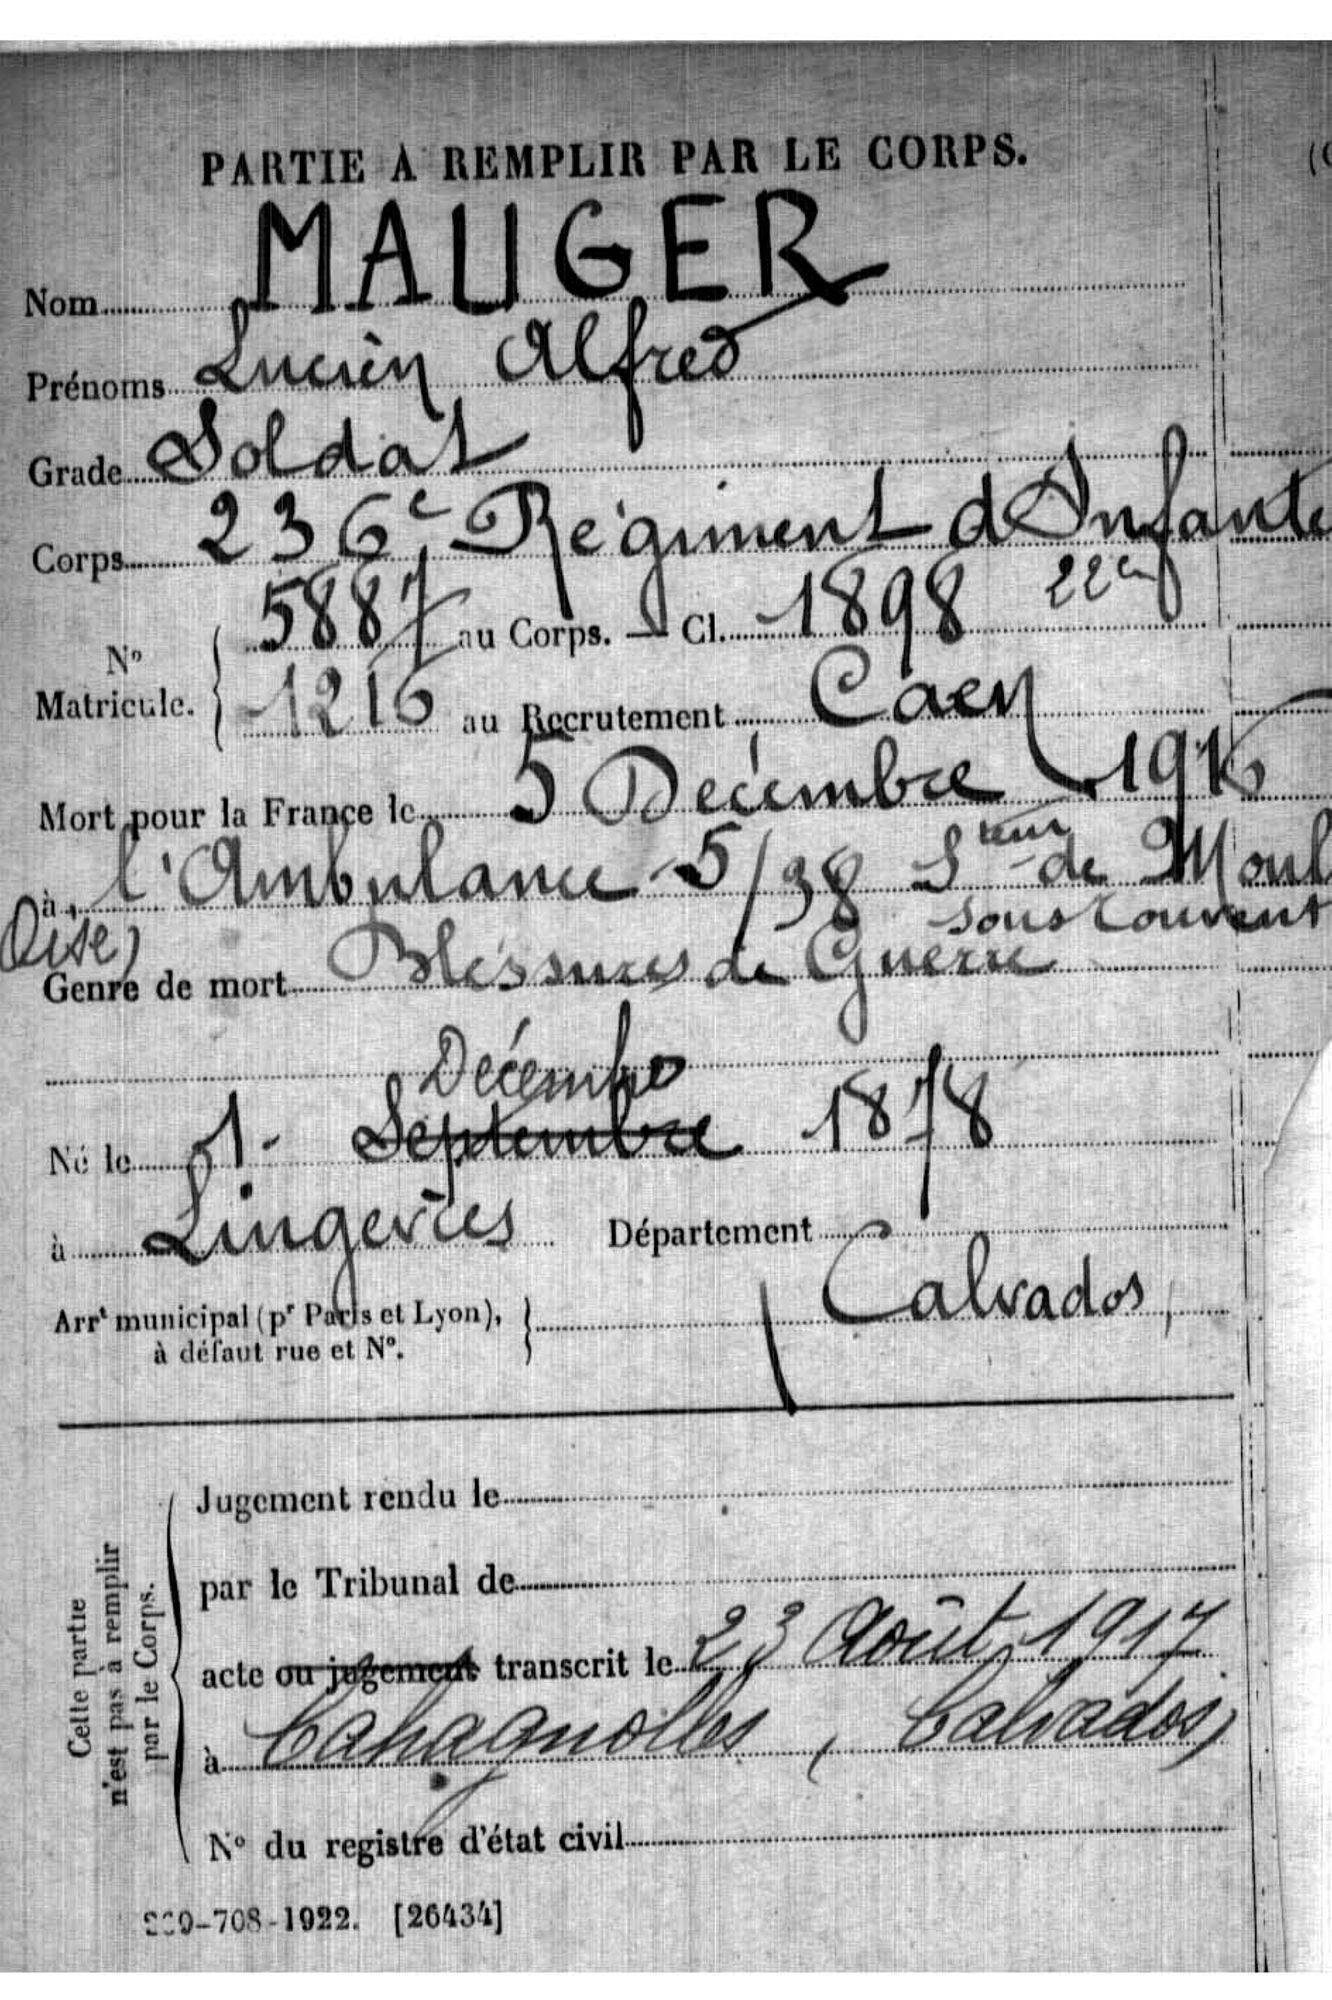 PARTIE A REMPLIR PAR LE CORPS.
Nom MAUGER
Prénoms Lucien Alfred
Grade Soldat
Corps 236e Régiment d'Infante
22e
5887 au Corps. — Cl. 1898
N° Matricule.
1216 au Recrutement Caen
Mort pour la France le 5 Décembre 1916
à l'Ambulance 5/38 Steur de Moul
sous Touvent
Oise)
Genre de mort Bléssures de Guerre
Décembre
Né le 1. Septembre 1878
à Lingevres Département
Calvados,
Arrt municipal (pr Paris et Lyon),
à défaut rue et N°.
Cette partie
n'est pas à remplir
par le Corps.
Jugement rendu le
par le Tribunal de
acte ou jugement transcrit le 23 Août 1917
à Cahagnolles, (Calvados)
N° du registre d'état civil
-708-1922. [26434]